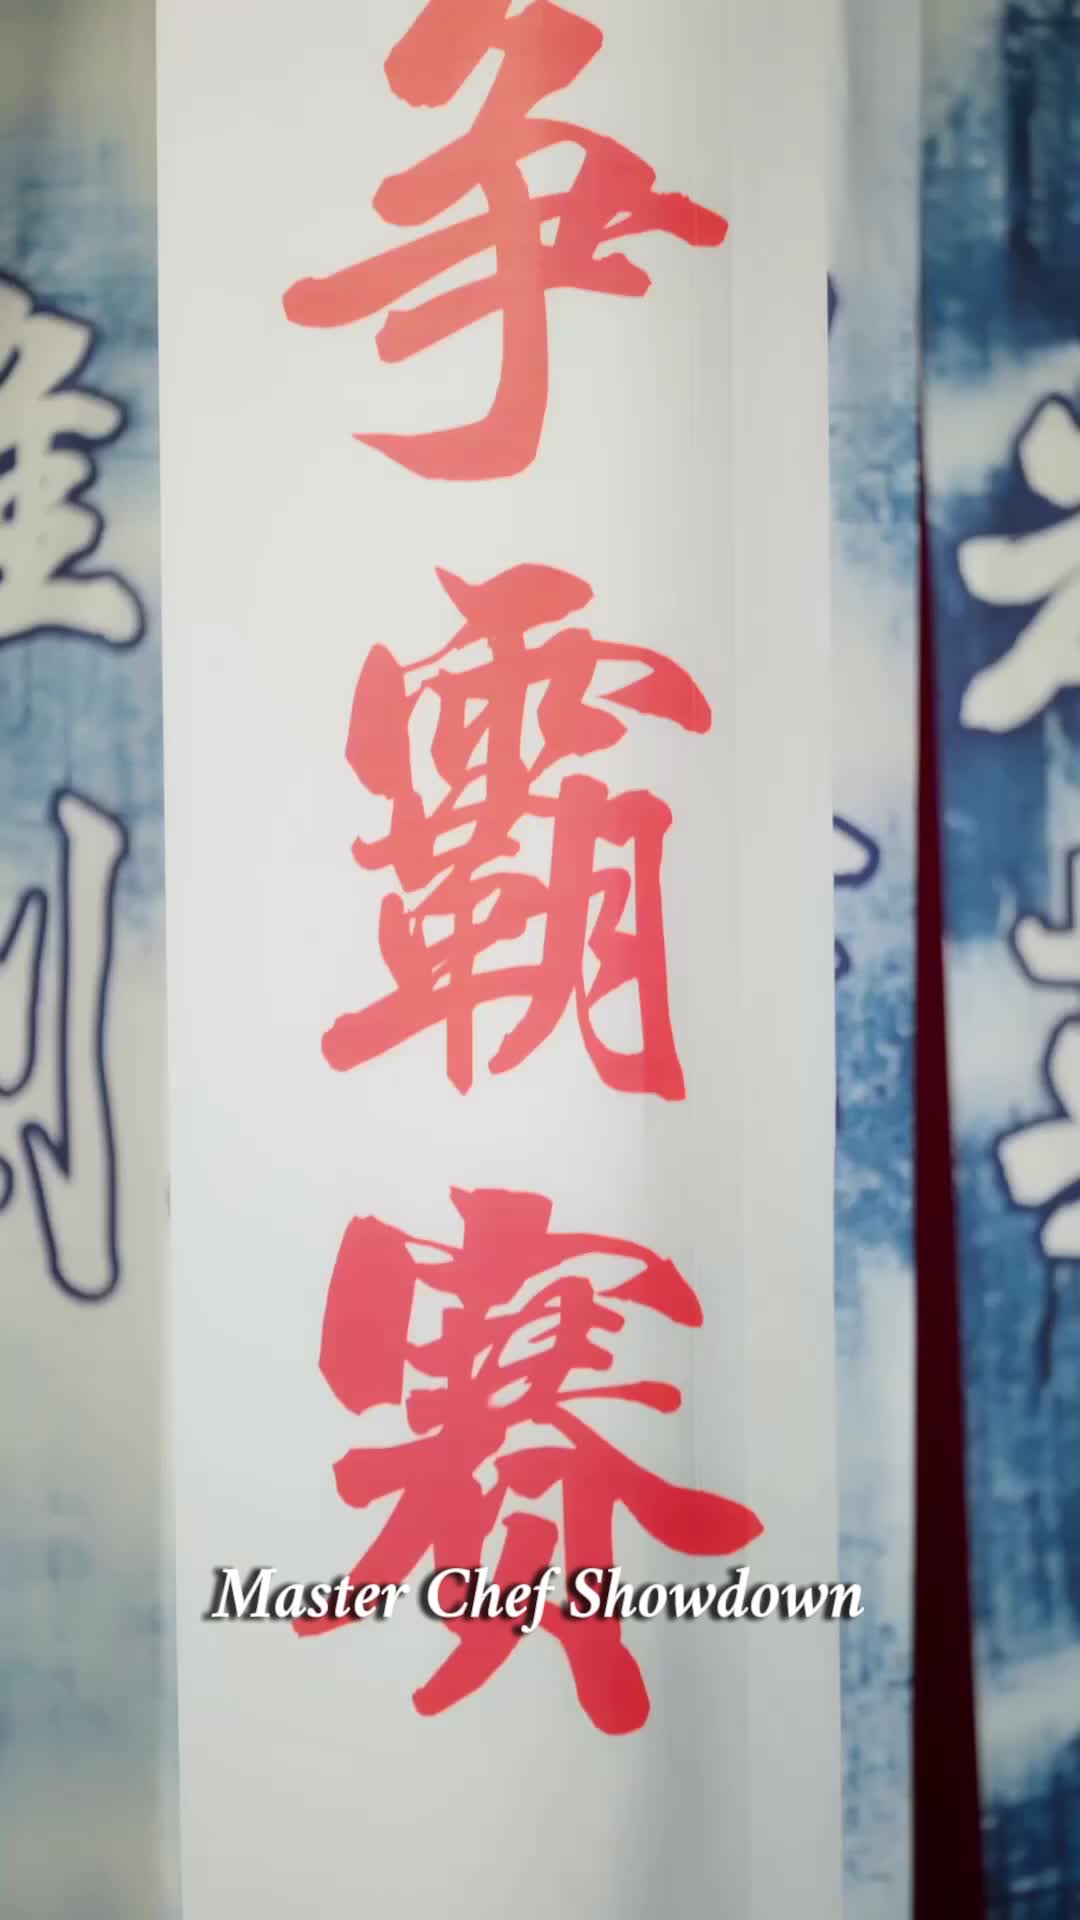 争霸赛
Master Chef Showdown